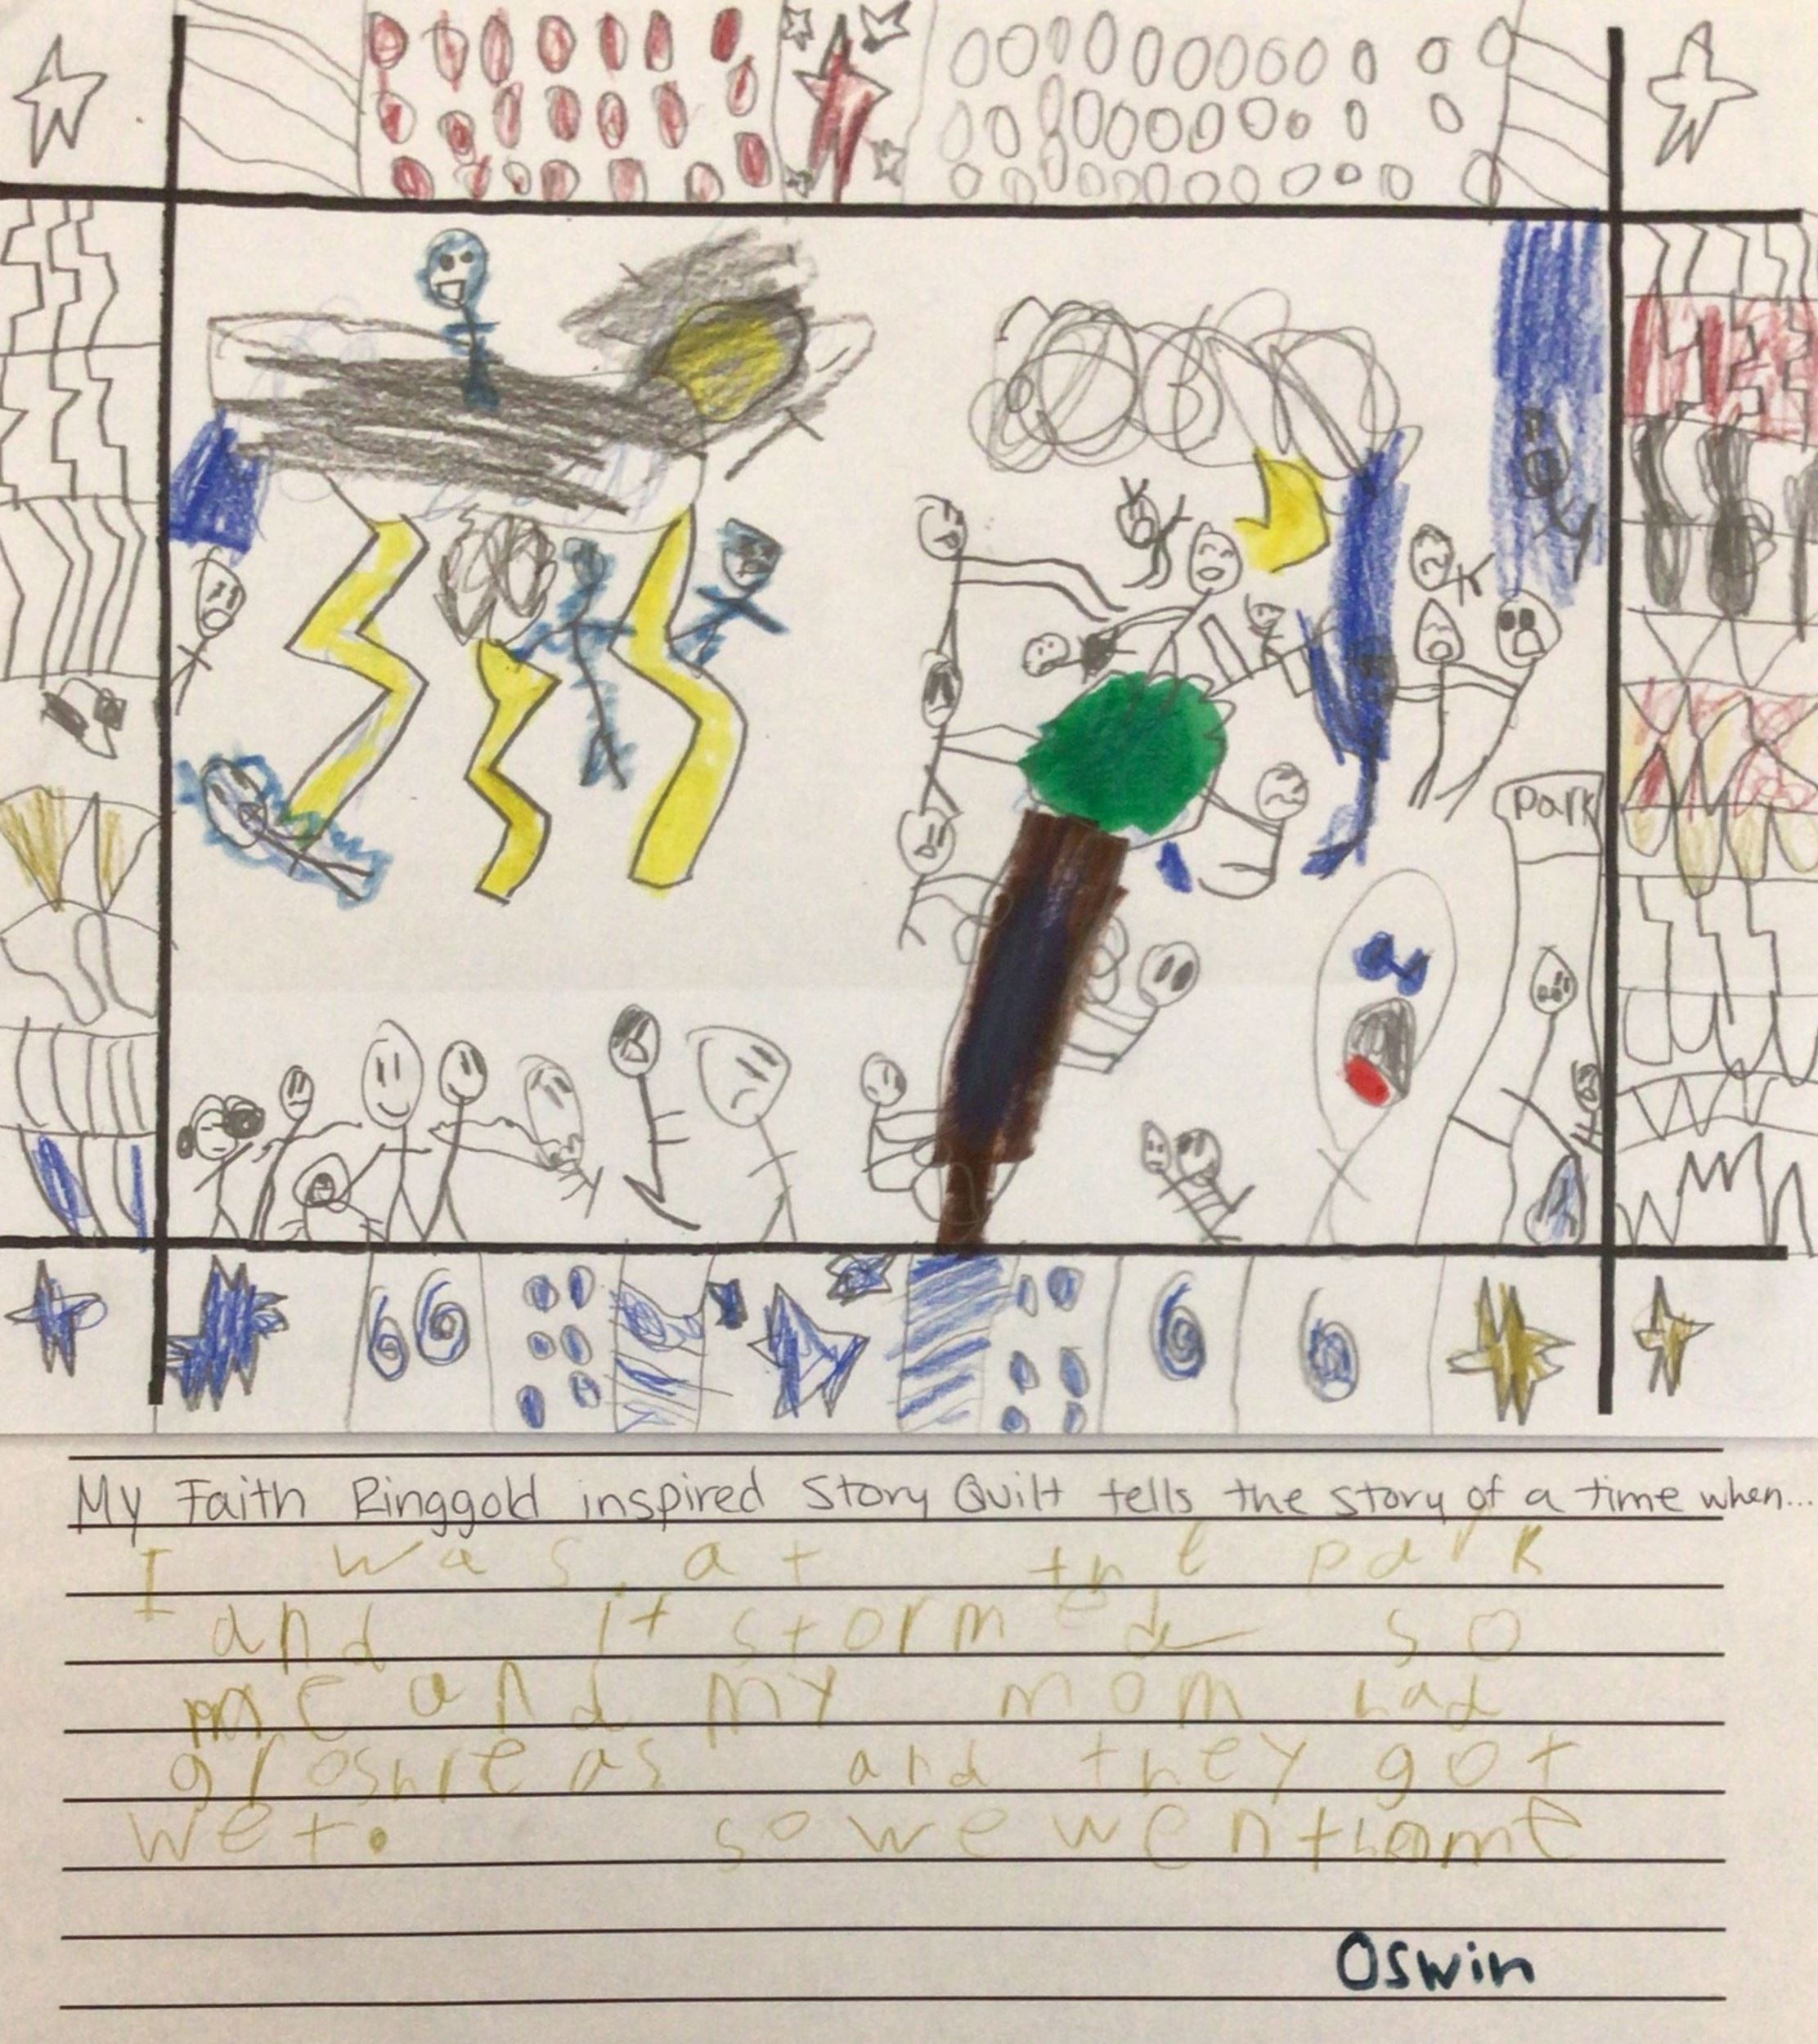 park
My Faith Ringgold inspired Story Quilt tells the story of a time when...
I was at the park
and it stormed so
me and my mom had
groshreas and they got
wet. so we went home
Oswin